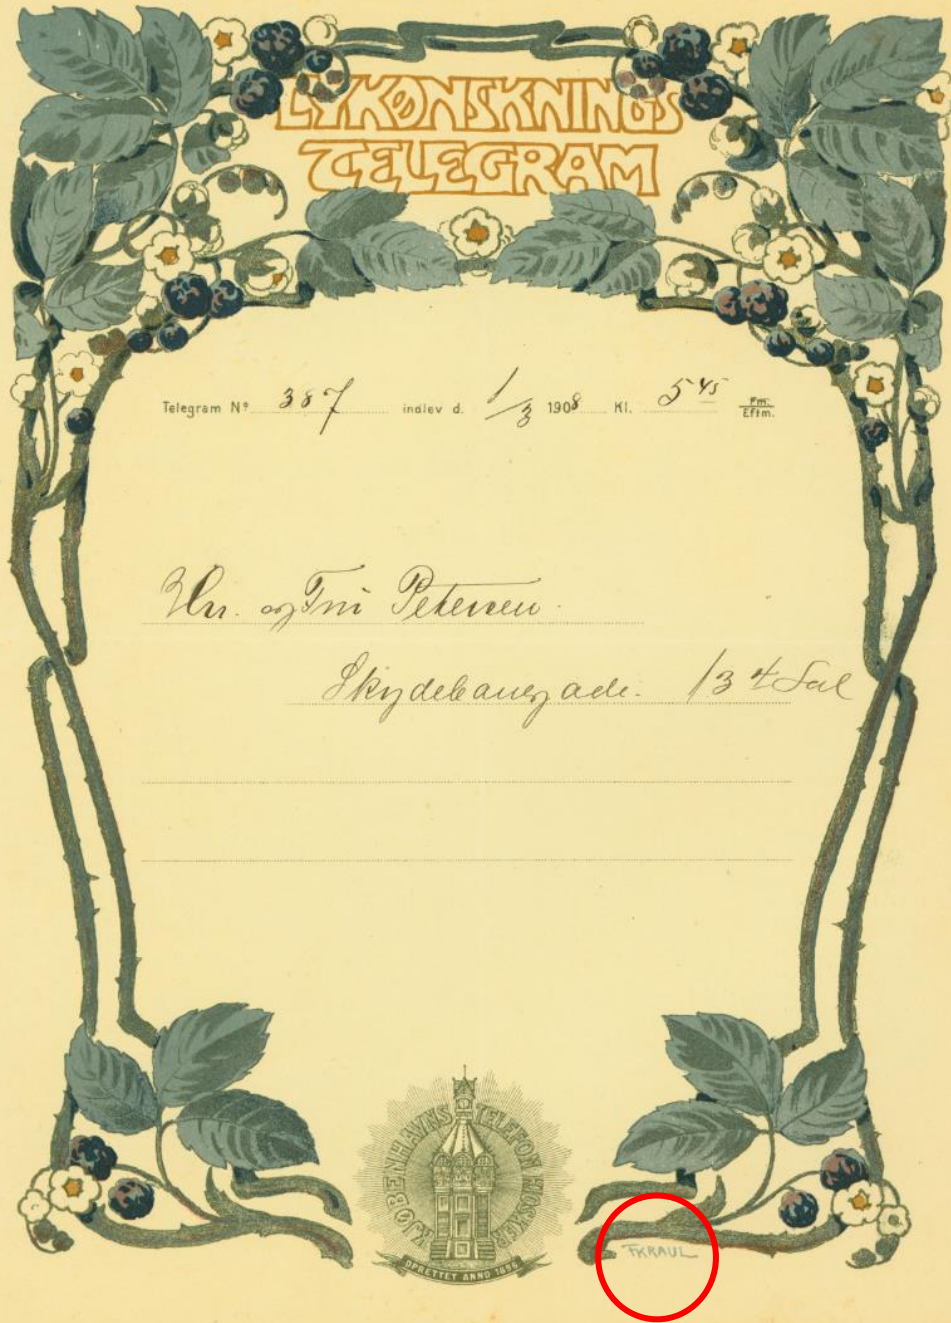 LYKØNSKNINGS
TELEGRAM
Telegram Nº 387 indlev d. 1/3 1908 Kl. 5 45 Fm. Eftm.
Hrr. og Fru Petersen.
Skydebanegade. 13 4 Sal
KJØBENHAVNS TELEFON KIOSKER
OPRETTET ANNO 1896
F.KRAUL